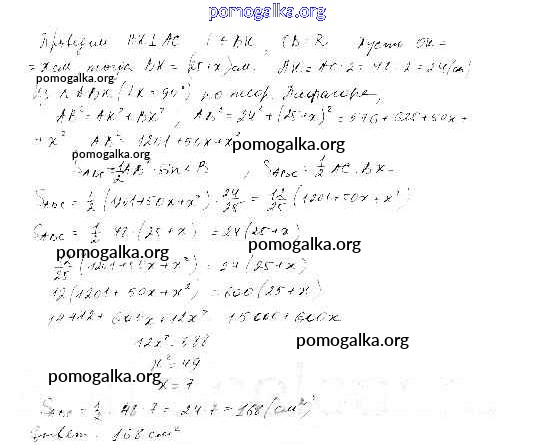 pomogalka.org
Проведем HK⊥AC
= x см тогда BK = (25+x) см. AK = AC : 2 = 48 : 2 = 24 (см)
pomogalka.org
Из △ABK (∠K=90°) по теор. Пифагора,
AB² = AK² + BK², AB² = 24² + (25+x)² = 576 + 625 + 50x +
+ x² AB² = 1201 + 50x + x²
pomogalka.org
pomogalka.org
S_ABC = 1/2 AB² · sin∠B, S_ABC = 1/2 AC · BK
S_ABC = 1/2 (1201+50x+x²) · 24/25 = 12/25 (1201+50x+x²)
S_ABC = 1/2 · 48 · (25+x) = 24(25+x)
pomogalka.org
pomogalka.org
12/25 (1201+50x+x²) = 24(25+x)
12(1201+50x+x²) = 600(25+x)
14412 + 600x + 12x² = 15000 + 600x
12x² = 588
pomogalka.org
x² = 49
pomogalka.org
x = 7
S_ABC = 1/2 · 48 · 7 = 24 · 7 = 168 (см²)
Ответ: 168 см²